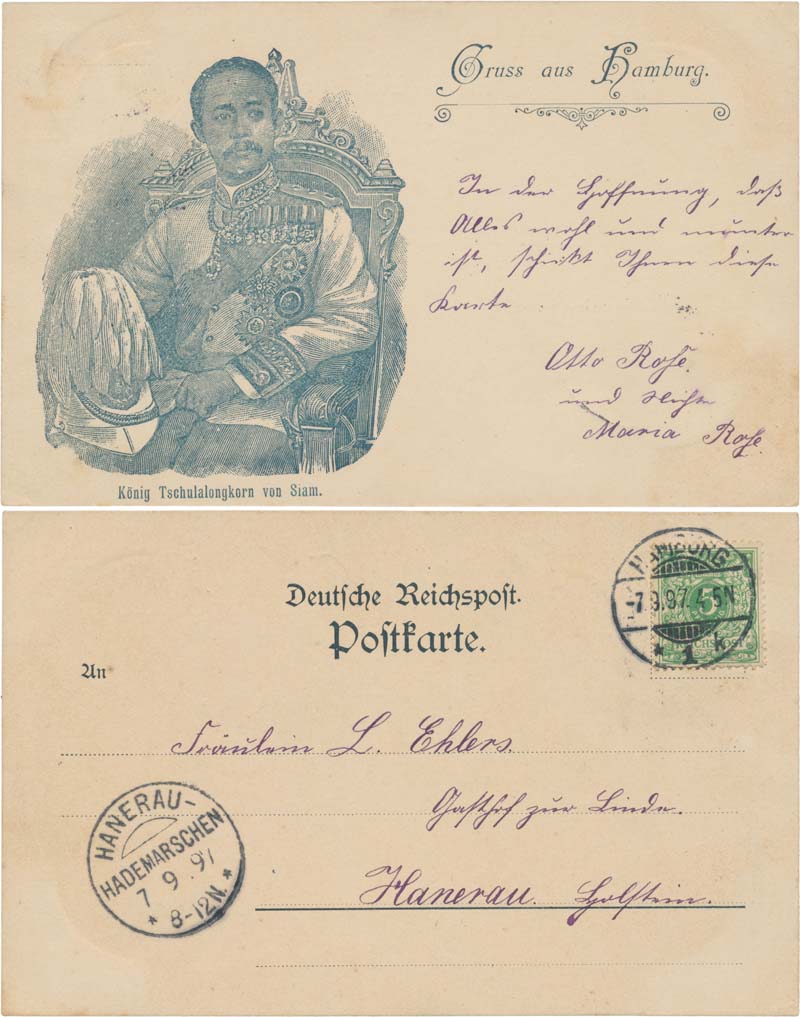 Gruss aus Hamburg.
In der Hoffnung, daß
Alles wohl und munter
ist, schickt Ihnen diese
Karte
Otto Rose.
und Nichte
Maria Rose.
König Tschulalongkorn von Siam.
HAMBURG
7.9.97. 4-5N
* 1 k
5
REICHSPOST
Deutsche Reichspost.
Postkarte.
An
Fräulein L. Ehlers.
Gasthof zur Linde.
Hanerau. Holstein.
HANERAU-
HADEMARSCHEN
7 9. 97
* 8-12N. *